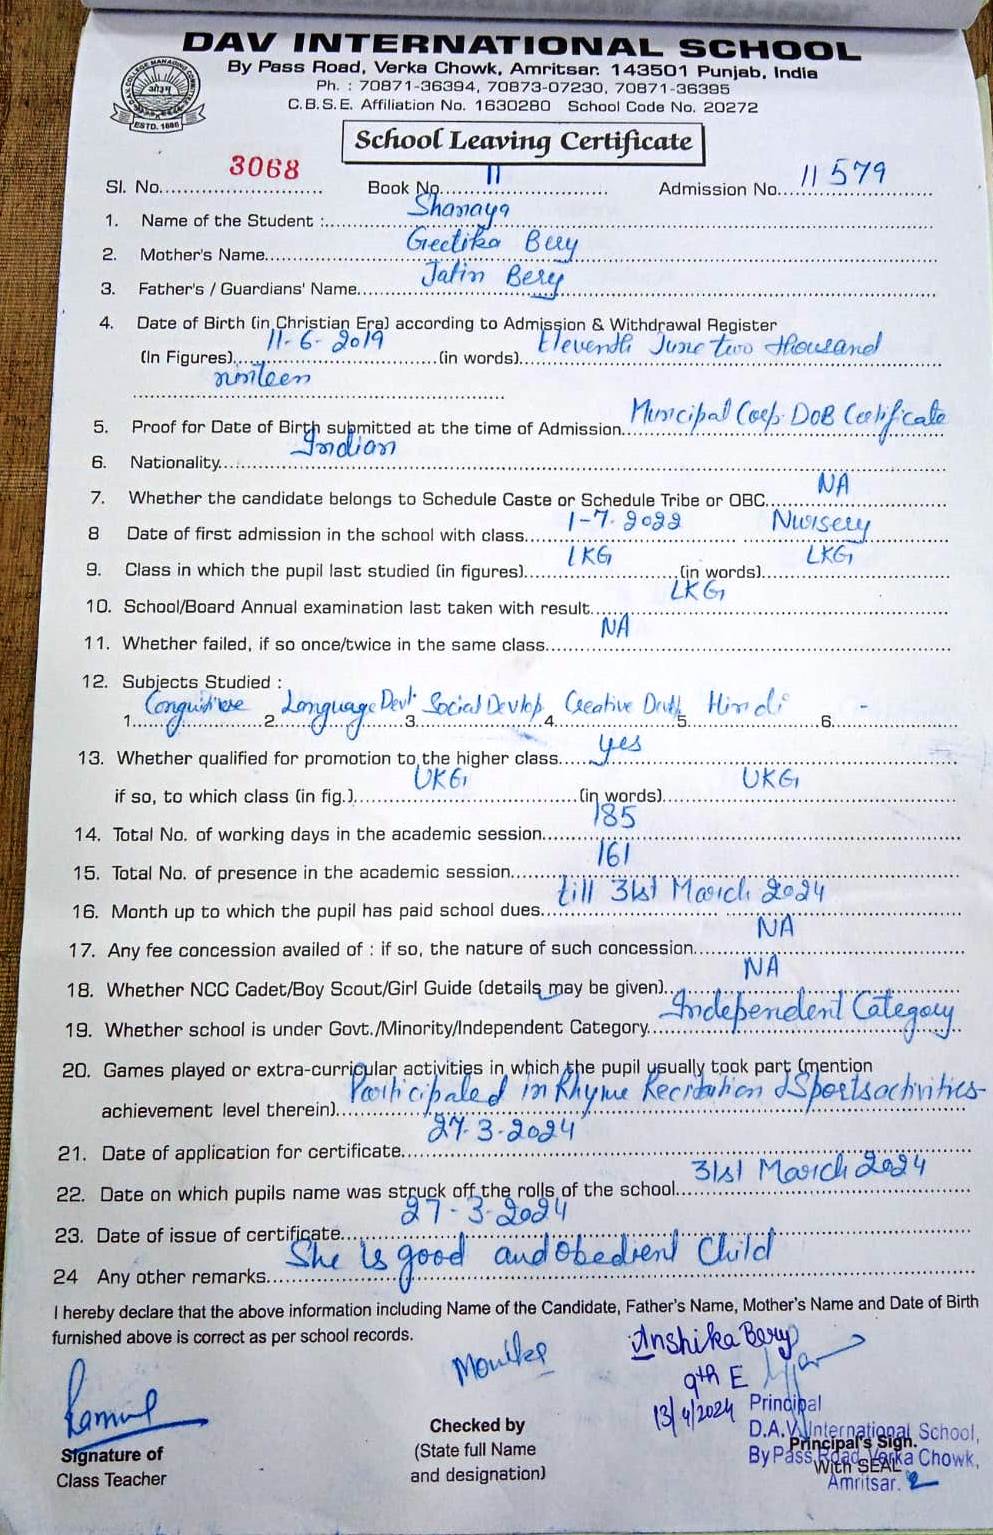 DAV INTERNATIONAL SCHOOL
By Pass Road, Verka Chowk, Amritsar. 143501 Punjab, India
Ph. : 70871-36394, 70873-07230, 70871-36395
C.B.S.E. Affiliation No. 1630280 School Code No. 20272
ESTD. 1886
School Leaving Certificate
Sl. No. 3068 Book No. 11 Admission No. 11579
1. Name of the Student : Shanaya
2. Mother's Name Geetika Bery
3. Father's / Guardians' Name Jatin Bery
4. Date of Birth (in Christian Era) according to Admission & Withdrawal Register
(In Figures) 11-6-2019 (in words) Eleventh June two thousand
ninteen
5. Proof for Date of Birth submitted at the time of Admission Municipal Corp. DOB Certificate
6. Nationality Indian
7. Whether the candidate belongs to Schedule Caste or Schedule Tribe or OBC NA
8 Date of first admission in the school with class 1-7-2022 Nursery
9. Class in which the pupil last studied (in figures) LKG (in words) LKG
10. School/Board Annual examination last taken with result LKG
11. Whether failed, if so once/twice in the same class NA
12. Subjects Studied :
1. 2. Language Devt 3. Social Devlop 4. Creative 5. Hindi 6. -
13. Whether qualified for promotion to the higher class yes
if so, to which class (in fig.) UKG (in words) UKG
14. Total No. of working days in the academic session 185
15. Total No. of presence in the academic session 161
16. Month up to which the pupil has paid school dues till 31st March 2024
17. Any fee concession availed of : if so, the nature of such concession NA
18. Whether NCC Cadet/Boy Scout/Girl Guide (details may be given) NA
19. Whether school is under Govt./Minority/Independent Category Independent Category
20. Games played or extra-curricular activities in which the pupil usually took part (mention
achievement level therein) Participated in Rhyme Recitation & Sports activities
21. Date of application for certificate 27-3-2024
22. Date on which pupils name was struck off the rolls of the school 31st March 2024
23. Date of issue of certificate 27-3-2024
24 Any other remarks She is good and obedient Child
I hereby declare that the above information including Name of the Candidate, Father's Name, Mother's Name and Date of Birth
furnished above is correct as per school records.
Anshika Bery
9th E
13/4/2024
Signature of
Class Teacher
Checked by
(State full Name
and designation)
Principal
D.A.V. International School,
Principal's Sign.
By Pass Road, Verka Chowk,
With SEAL
Amritsar.